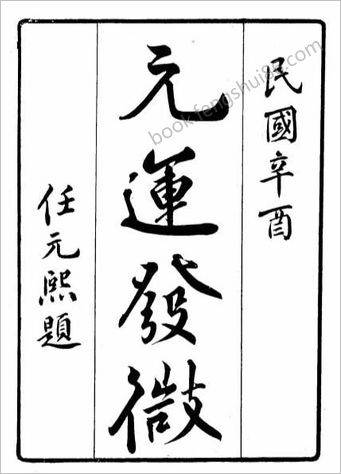 民國辛酉
元運發微
任元熙題
book.fengshui86.com